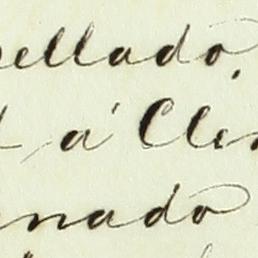 ellado,
á Cle
nado